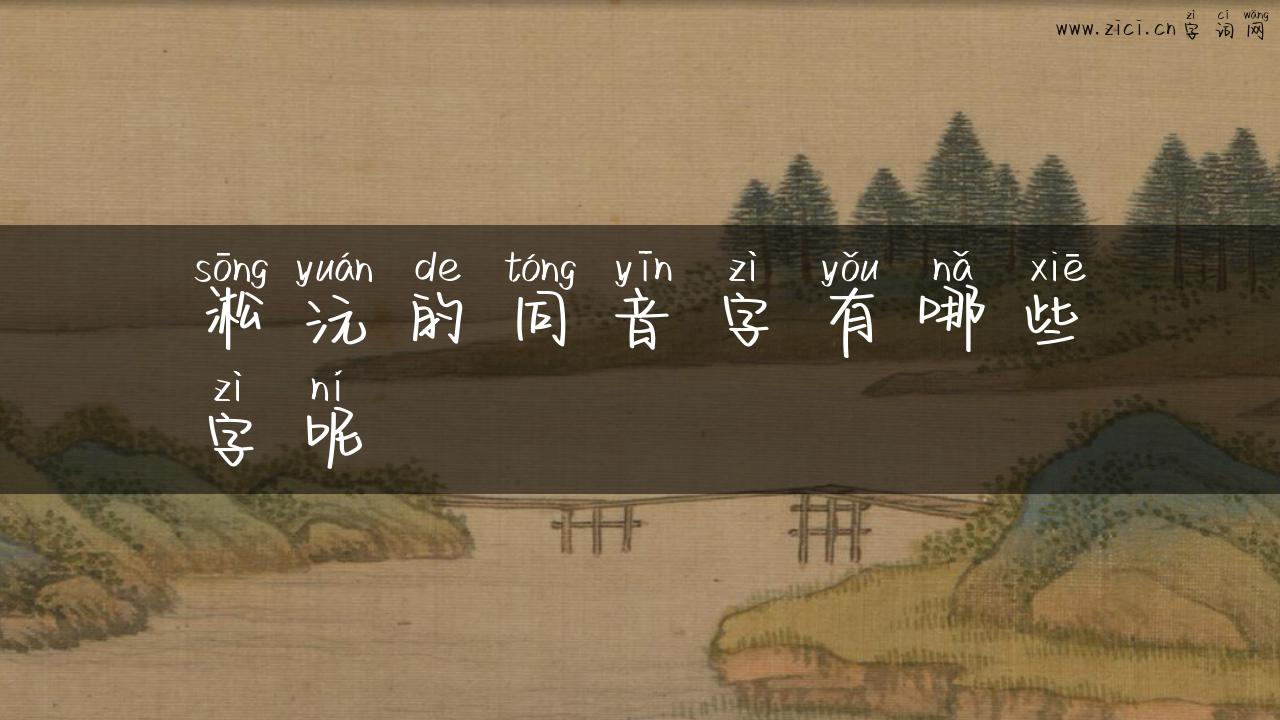 zì cí wǎng
www.zici.cn 字 词 网
sōng yuán de tóng yīn zì yǒu nǎ xiē
淞 沅 的 同 音 字 有 哪 些
zì ní
字 呢